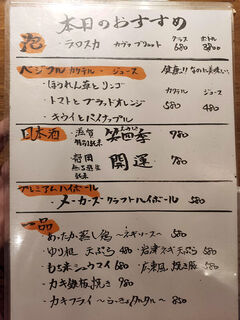 本日のおすすめ
泡 グラス ボトル
・ラロスカ カヴァ ブリュット 680 3800
ベジフル カクテル・ジュース
カクテル ジュース
・ほうれん草とリンゴ
・トマトとブラッドオレンジ 580 480
・キウイとパイナップル
日本酒 ・滋賀 特別純米 笑四季 780
・静岡 無濾過生純米 開運 780
プレミアムハイボール
・メーカーズ クラフトハイボール 580
一品
・あったか蒸し鶏 〜ネギソース〜 580
・ゆり根 天ぷら 480 ・岩津ネギ天ぷら 580
・もち米シュウマイ 680 ・広東風 焼き豚 580
・カキ鉄板焼き 980
・カキフライ 〜らっきょタルタル〜 850